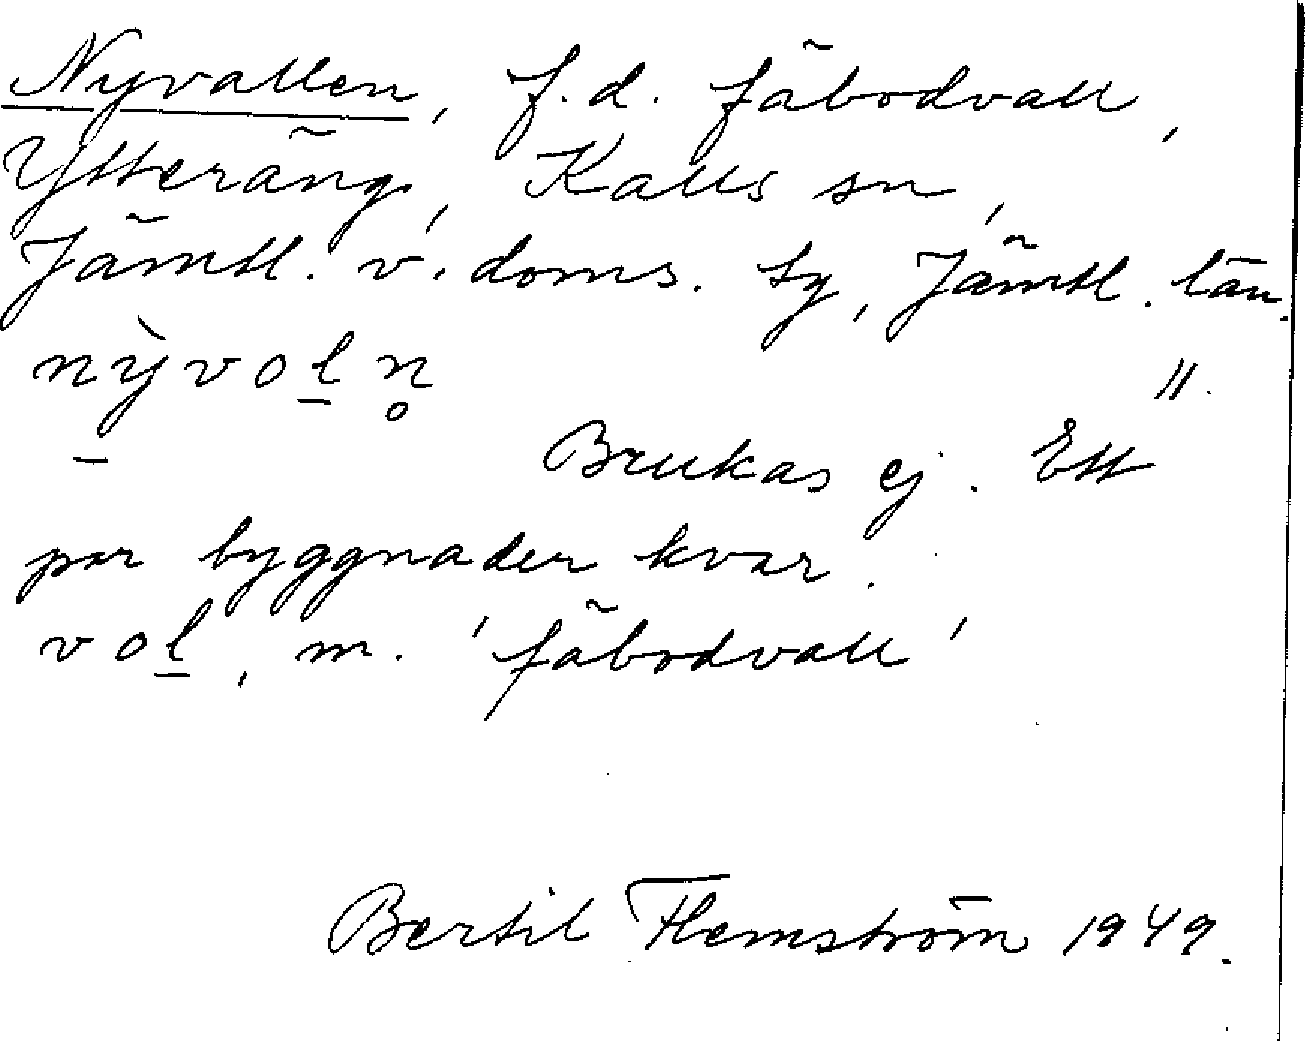 Nyvallen, f.d. fäbodvall,
Ytteräng, Kalls sn,
Jämtl. v. doms. sg, Jämtl. län.
nỳ̠vol̠n̥ ".
Brukas ej. Ett
par byggnader kvar.
vol̠, m. 'fäbodvall'
Bertil Flemström 1949.